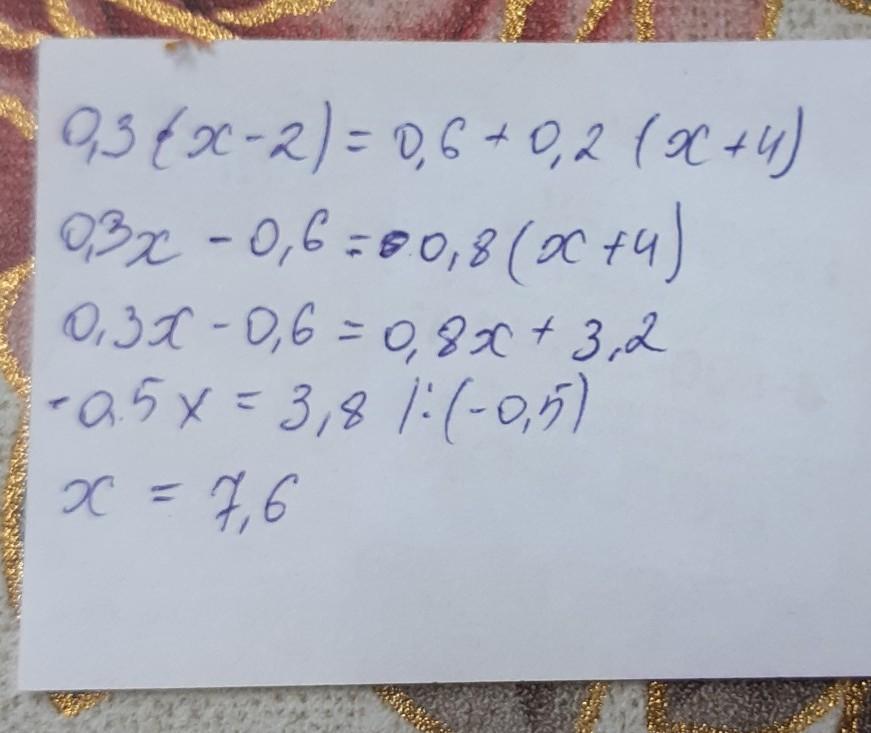 0,3(x-2)=0,6+0,2(x+4)
0,3x-0,6=0,8(x+4)
0,3x-0,6=0,8x+3,2
-0.5x=3,8 |:(-0,5)
x=7,6